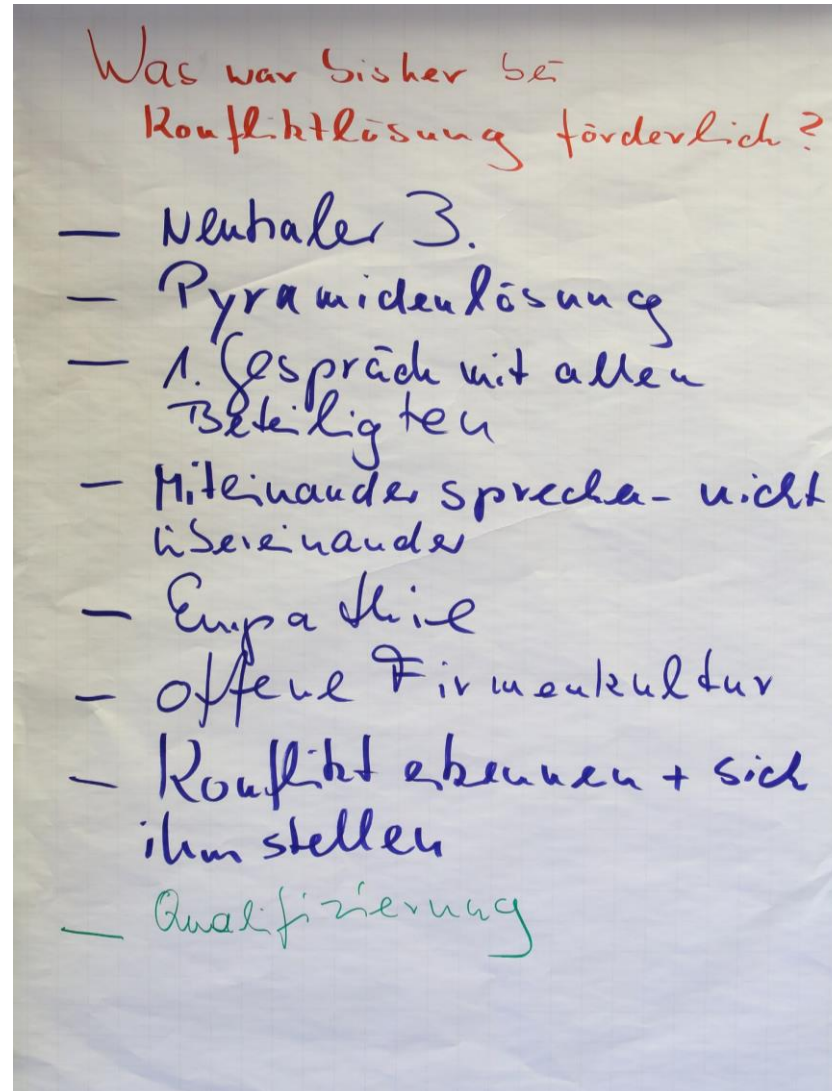 Was war bisher bei
Konfliktlösung förderlich?
— Neutraler 3.
— Pyramidenlösung
— 1. Gespräch mit allen
Beteiligten
— Miteinander sprechen - nicht
übereinander
— Empathie
— offene Firmenkultur
— Konflikt erkennen + sich
ihm stellen
— Qualifizierung